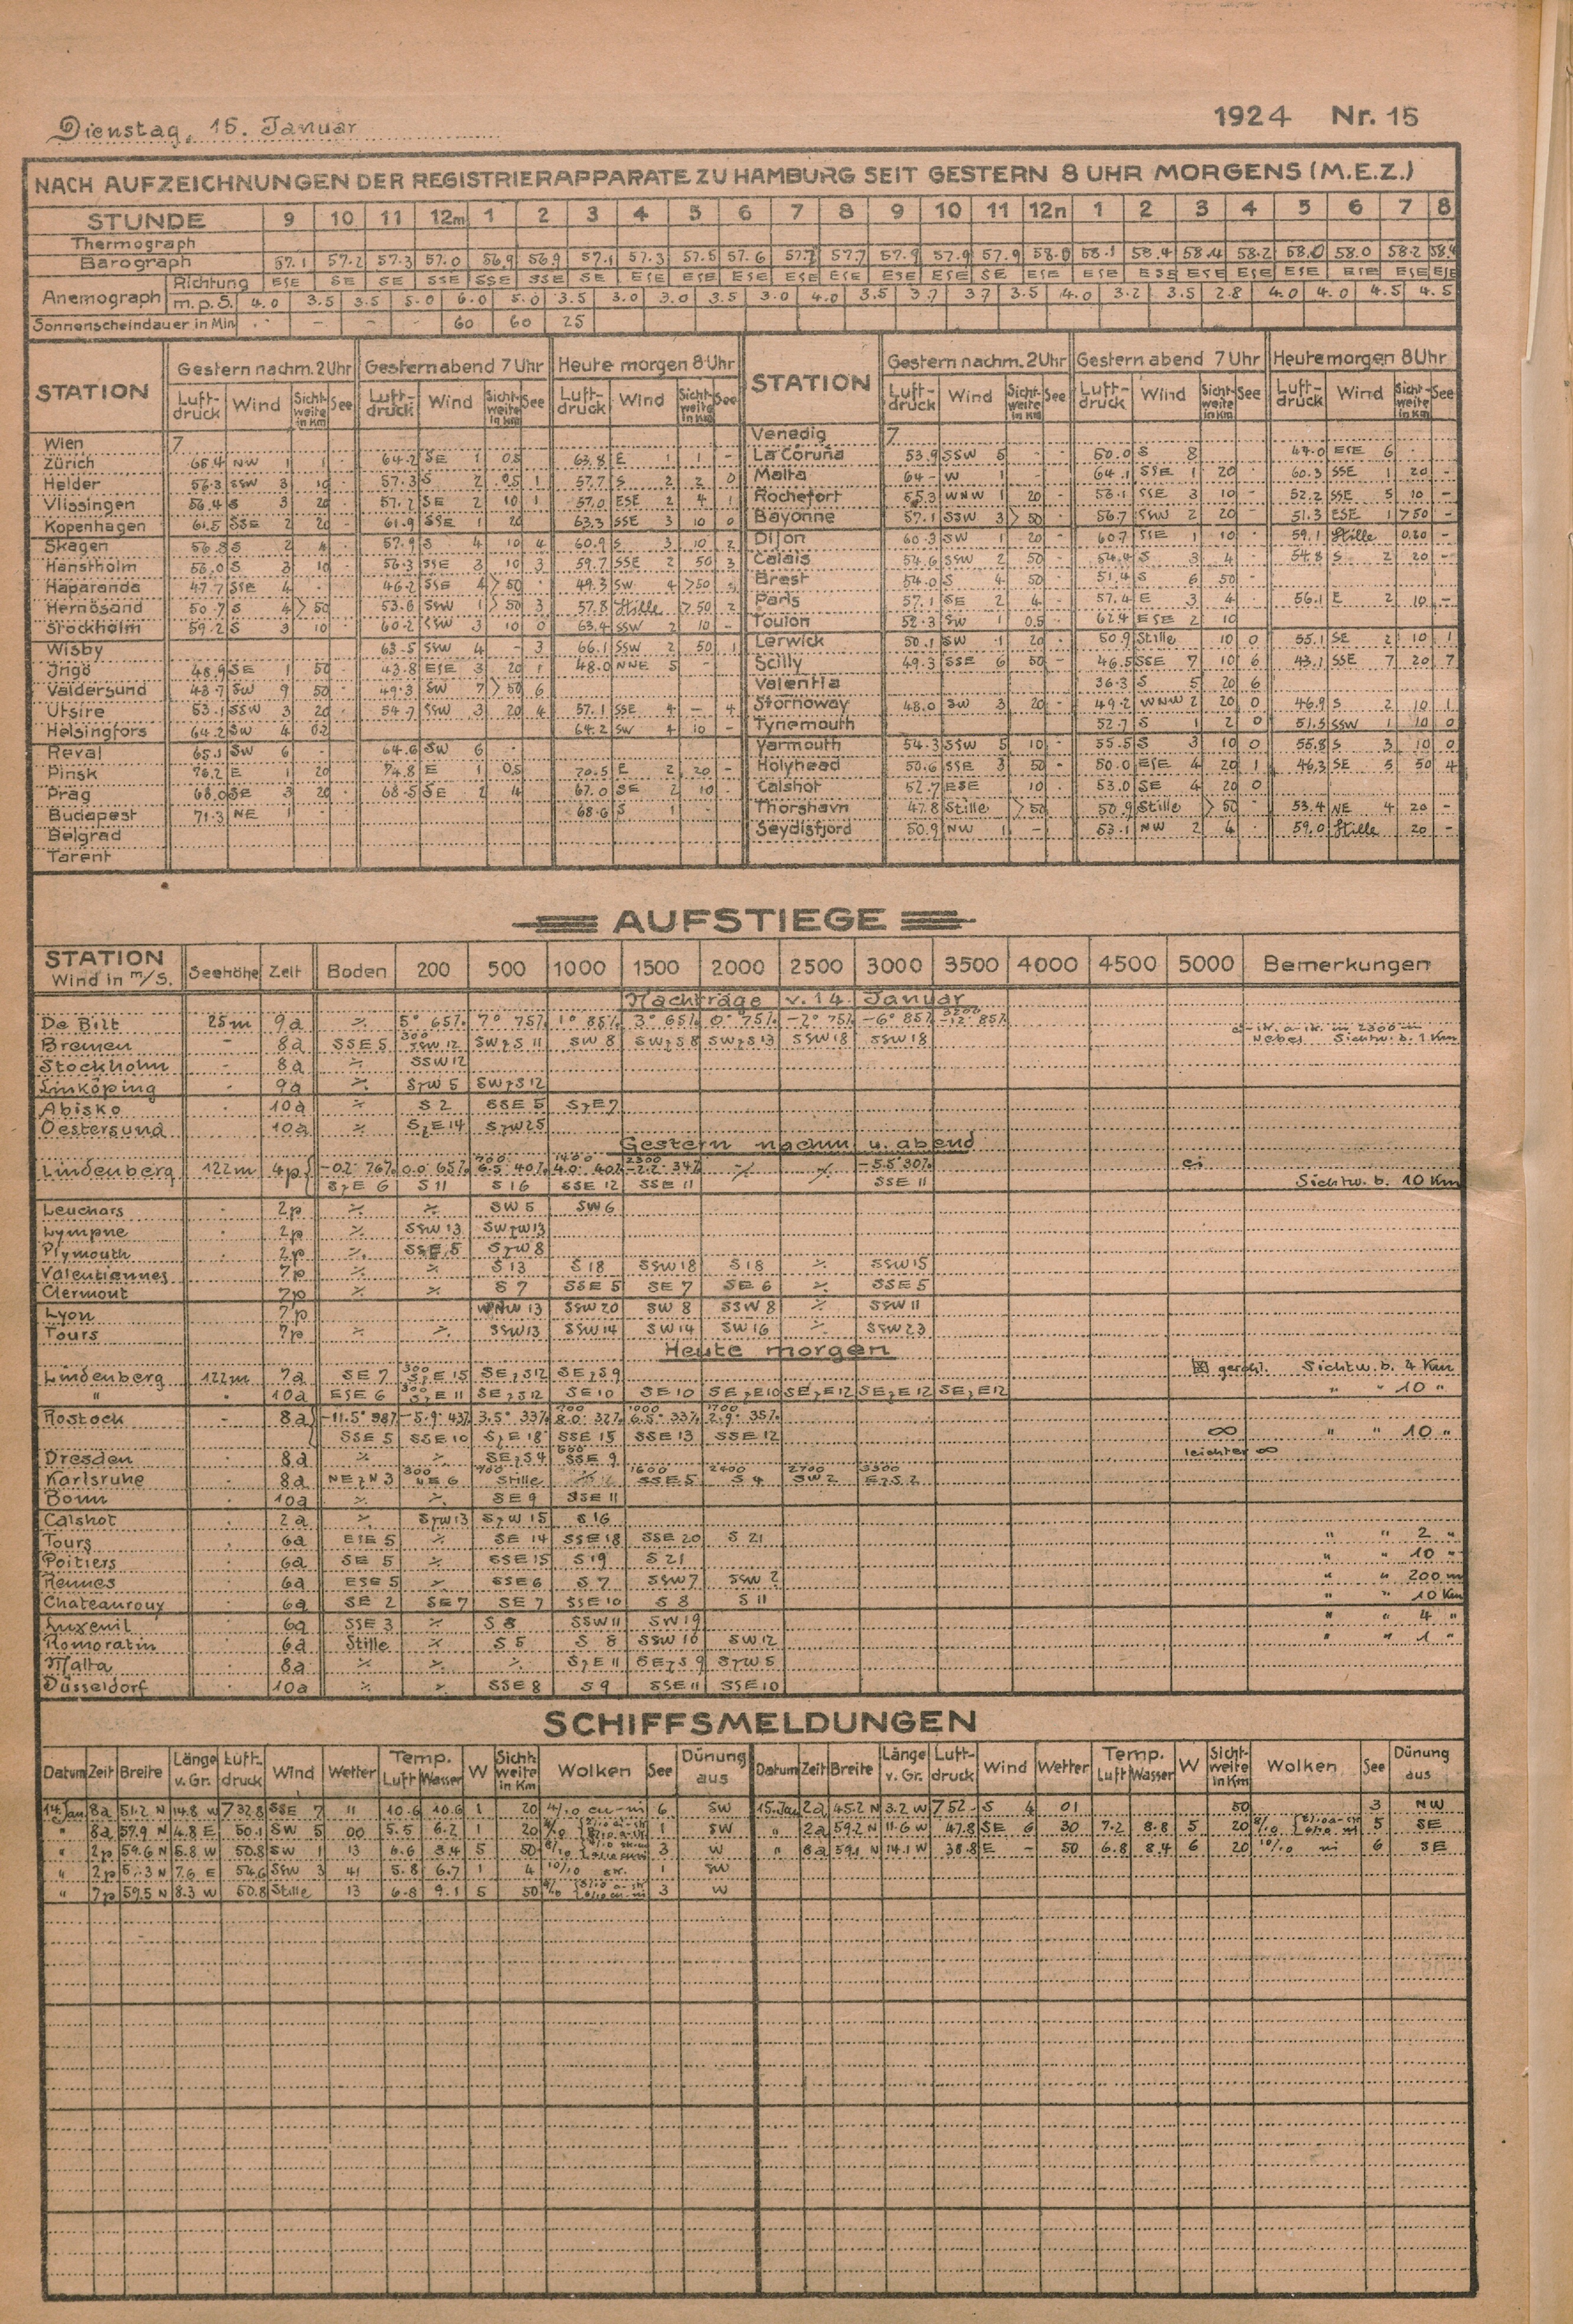 Dienstag, 15. Januar 1924 Nr. 15
NACH AUFZEICHNUNGEN DER REGISTRIERAPPARATE ZU HAMBURG SEIT GESTERN 8 UHR MORGENS (M.E.Z.)
STUNDE 9 10 11 12m 1 2 3 4 5 6 7 8 9 10 11 12n 1 2 3 4 5 6 7 8
Thermograph
Barograph 57.1 57.2 57.3 57.0 56.9 56.9 57.1 57.3 57.5 57.6 57.7 57.7 57.9 57.9 57.9 58.0 58.1 58.4 58.4 58.2 58.0 58.0 58.2 58.4
Anemograph Richtung ESE SE SE SSE SSE SSE SE ESE ESE ESE ESE ESE ESE ESE SE ESE ESE ESE ESE ESE ESE ESE ESE ESE
m.p.S. 4.0 3.5 3.5 5.0 6.0 5.0 3.5 3.0 3.0 3.5 3.0 4.0 3.5 3.7 3.7 3.5 4.0 3.2 3.5 2.8 4.0 4.0 4.5 4.5
Sonnenscheindauer in Min. - - - 60 60 25
STATION Gestern nachm. 2 Uhr Gestern abend 7 Uhr Heute morgen 8 Uhr STATION Gestern nachm. 2 Uhr Gestern abend 7 Uhr Heute morgen 8 Uhr
Luft-druck Wind Sicht-weite in Km See Luft-druck Wind Sicht-weite in Km See Luft-druck Wind Sicht-weite in Km See Luft-druck Wind Sicht-weite in Km See Luft-druck Wind Sicht-weite in Km See Luft-druck Wind Sicht-weite in Km See
Wien 7 Venedig 7
Zürich 65.4 NW 1 1 - 64.2 SE 1 0.5 63.8 E 1 1 - La Coruña 53.9 SSW 5 - - 50.0 S 8 47.0 ESE 6 -
Helder 56.3 SSW 3 10 - 57.3 S 2 0.5 1 57.7 S 2 2 0 Malta 64 - W 1 64.1 SSE 1 20 - 60.3 SSE 1 20 -
Vlissingen 56.4 S 3 20 - 57.2 SE 2 10 1 57.0 ESE 2 4 1 Rochefort 55.3 WNW 1 20 - 53.1 SSE 3 10 - 52.2 SSE 5 10 -
Kopenhagen 61.5 SSE 2 20 - 61.9 SSE 1 20 63.3 SSE 3 10 0 Bayonne 57.1 SSW 3 >50 - 56.7 SSW 2 20 - 51.3 ESE 1 >50 -
Skagen 56.8 S 2 4 - 57.9 S 4 10 4 60.9 S 3 10 2 Dijon 60.3 SW 1 20 - 60.7 SSE 1 10 - 59.1 Stille 0.20 -
Hanstholm 56.0 S 3 10 - 56.3 SSE 3 10 3 59.7 SSE 2 50 3 Calais 54.6 SSW 2 50 - S 3 4 - 54.8 S 2 20 -
Haparanda 47.7 SSE 4 - 46.2 SSE 4 >50 - 49.3 SW 4 >50 Brest 54.0 S 4 50 - 51.4 S 6 50 -
Hernösand 50.7 S 4 >50 53.6 SSW 1 >50 3 57.8 Stille >50 2 Paris 57.1 SE 2 4 - 57.4 E 3 4 56.1 E 2 10 -
Stockholm 59.2 S 3 10 60.2 SSW 3 10 0 63.4 SSW 2 10 - Toulon 52.3 SW 1 0.5 62.4 ESE 2 10
Wisby 63.5 SSW 4 - 3 66.1 SSW 2 50 1 Lerwick 50.1 SW 1 20 - 50.9 Stille 10 0 55.1 SE 2 10 1
Ingö 48.9 SE 1 50 - 43.8 ESE 3 20 1 48.0 NNE 5 - Scilly 49.3 SSE 6 50 - 46.5 SSE 7 10 6 43.1 SSE 7 20 7
Valdersund 43.7 SW 9 50 - 49.3 SW 7 >50 6 Valentia 36.3 S 5 20 6
Utsire 53.1 SSW 3 20 - 54.7 SSW 3 20 4 57.1 SSE 4 - 4 Stornoway 48.0 SW 3 20 - 49.2 WNW 2 20 0 46.9 S 2 10 1
Helsingfors 64.2 SW 4 0.2 64.2 SW 4 10 - Tynemouth 52.7 S 1 2 0 51.5 SSW 1 10 0
Reval 65.1 SW 6 - 64.6 SW 6 - Yarmouth 54.3 SSW 5 10 - 55.5 S 3 10 0 55.8 S 3 10 0
Pinsk 76.2 E 1 20 74.8 E 1 0.5 70.5 E 2 20 - Holyhead 50.6 SSE 3 50 - 50.0 ESE 4 20 1 46.3 SE 5 50 4
Prag 68.0 SE 3 20 - 68.5 SE 2 4 67.0 SE 2 10 - Calshot 52.7 ESE 10 - 53.0 SE 4 20 0
Budapest 71.3 NE 1 68.6 S 1 - Thorshavn 47.8 Stille >50 50.9 Stille >50 - 53.4 NE 4 20 -
Belgrad Seydisfjord 50.9 NW 1 - 53.1 NW 2 4 - 59.0 Stille 20 -
Tarent
AUFSTIEGE
STATION Wind in m/S. Seehöhe Zeit Boden 200 500 1000 1500 2000 2500 3000 3500 4000 4500 5000 Bemerkungen
Nachträge v. 14. Januar
De Bilt 25m 9a ٪ 5° 65% 7° 75% 1° 85% 3° 65% 0° 75% -2° 75% -6° 85% 3200 -12° 85%
Bremen - 8a SSE 5 300 SSW 12 SWzS 11 SW 8 SWzS 8 SWzS 13 SSW 18 SSW 18 Nebel Sichtw. b. 1 Km
Stockholm - 8a ٪ SSW 12
Linköping - 9a ٪ SzW 5 SWzS 12
Abisko - 10a ٪ S 2 SSE 5 SzE 7
Oestersund 10a ٪ SzE 14 SzW 25
Gestern nachm. u. abend
Lindenberg 122m 4p -0.2° 76% 0.0° 65% 700 6.5° 40% 1400 4.0° 40% 2300 -2.2° 34% ٪ ٪ -5.5° 30% ci
SzE 6 S 11 S 16 SSE 12 SSE 11 SSE 11 Sichtw. b. 10 Km
Leuchars - 2p ٪ ٪ SW 5 SW 6
Lympne - 2p ٪ SSW 13 SWzW 13
Plymouth - 2p ٪ SSE 5 SzW 8
Valentiennes 7p ٪ ٪ S 13 S 18 SSW 18 S 18 ٪ SSW 15
Clermont 7p ٪ ٪ S 7 SSE 5 SE 7 SE 6 ٪ SSE 5
Lyon 7p WNW 13 SSW 20 SW 8 SSW 8 ٪ SSW 11
Tours 7p ٪ ٪ SSW 13 SSW 14 SW 14 SW 16 ٪ SSW 23
Heute morgen
Lindenberg 122m 7a SE 7 300 SzE 15 SEzS 12 SEzS 9 Sichtw. b. 4 Km
" " 10a ESE 6 300 SzE 11 SEzS 12 SE 10 SE 10 SEzE 10 SEzE 12 SEzE 12 SEzE 12 " " 10 "
Rostock - 8a -11.5° 98% -5.9° 43% 3.5° 33% 700 8.0° 32% 1000 6.5° 33% 1700 2.9° 35%
SSE 5 SSE 10 SzE 18 SSE 15 SSE 13 SSE 12 ∞ " " 10 "
Dresden - 8a ٪ ٪ SEzS 4 600 SSE 9 leichter ∞
Karlsruhe - 8a NEzN 3 300 NE 6 700 Stille 1600 SSE 5 2400 S 4 2700 SW 2 3300 EzS 2
Bonn - 10a ٪ ٪ SE 9 SSE 11
Calshot - 2a ٪ SzW 13 SzW 15 S 16
Tours - 6a ESE 5 ٪ SE 14 SSE 18 SSE 20 S 21 " " 2 "
Poitiers - 6a SE 5 ٪ SSE 15 S 19 S 21 " " 10 "
Rennes - 6a ESE 5 ٪ SSE 6 S 7 SSW 7 SSW 2 " " 200 m
Chateauroux - 6a SE 2 SE 7 SE 7 SSE 10 S 8 S 11 " " 10 Km
Luxeuil - 6a SSE 3 ٪ S 8 SSW 11 SW 19 " " 4 "
Romoratin - 6a Stille ٪ S 5 S 8 SSW 10 SW 12 " " 1 "
Malta - 8a ٪ ٪ ٪ SzE 11 SEzS 9 SzW 5
Düsseldorf - 10a ٪ ٪ SSE 8 S 9 SSE 11 SSE 10
SCHIFFSMELDUNGEN
Datum Zeit Breite Länge v. Gr. Luft-druck Wind Wetter Temp. Luft Wasser W Sicht-weite in Km Wolken See Dünung aus Datum Zeit Breite Länge v. Gr. Luft-druck Wind Wetter Temp. Luft Wasser W Sicht-weite in Km Wolken See Dünung aus
14.Jan 8a 51.2 N 14.8 W 732.8 SSE 7 11 10.6 10.6 1 20 4/10 cu-ni 6 SW 15.Jan 2a 45.2 N 3.2 W 752 - S 4 01 50 3 NW
" 8a 57.9 N 4.8 E 50.1 SW 5 00 5.5 6.2 1 20 1 SW " 2a 59.2 N 11.6 W 47.8 SE 6 30 7.2 8.8 5 20 5 SE
" 2p 59.6 N 5.8 W 50.8 SW 1 13 6.6 8.4 5 50 3 W " 8a 59.1 N 14.1 W 38.8 E - 50 6.8 8.4 6 20 10/10 ni 6 SE
" 2p 5.3 N 7.6 E 54.6 SSW 3 41 5.8 6.7 1 4 10/10 str. 1 SW
" 7p 59.5 N 8.3 W 50.8 Stille 13 6.8 9.1 5 50 3 W